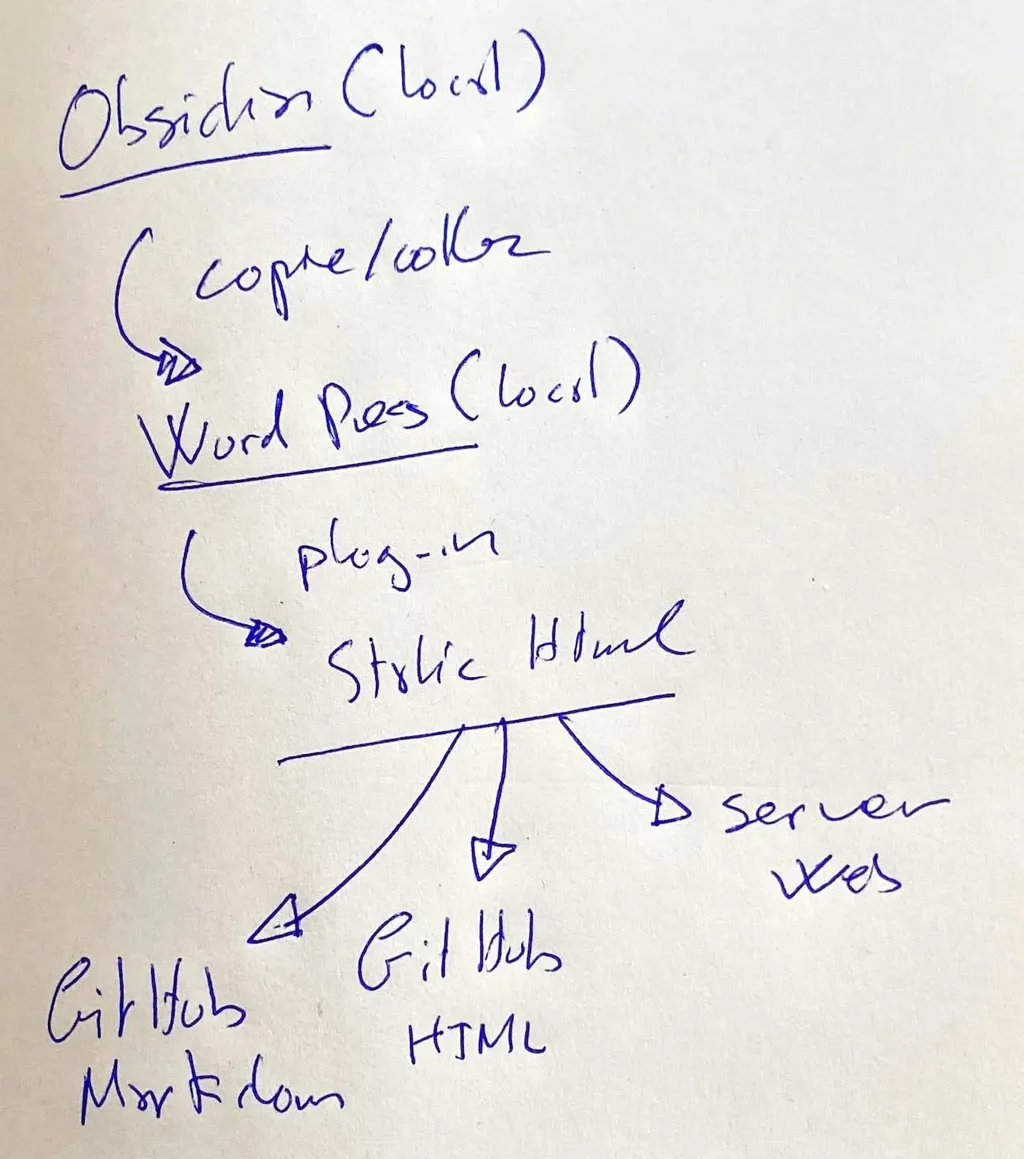 Obsidian (local)
copie/coller
Word Press (local)
plug-in
Static Html
server
web
GitHub
HTML
GitHub
Markdown